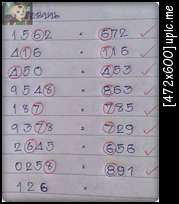 1562 = 672
416 = 116
450 = 453
9548 = 863
187 = 785
9378 = 729
2645 = 656
0258 = 891
126 =
[472x600]upic.me